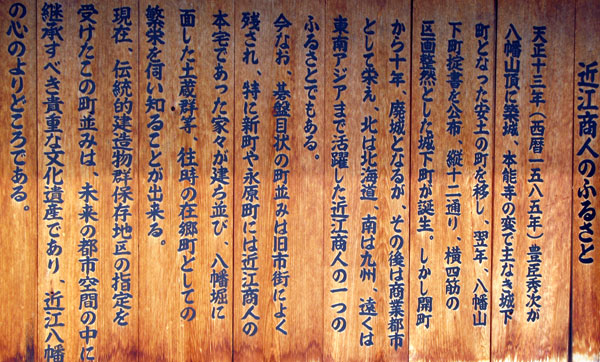 近江商人のふるさと
天正十三年（西暦一五八五年）豊臣秀次が
八幡山頂に築城、本能寺の変で主なき城下
町となった安土の町を移し、翌年、八幡山
下町掟書を公布、縦十二通り、横四筋の
区画整然とした城下町が誕生。しかし開町
から十年、廃城となるが、その後は商業都市
として栄え、北は北海道、南は九州、遠くは
東南アジアまで活躍した近江商人の一つの
ふるさとでもある。
今なお、碁盤目状の町並みは旧市街によく
残され、特に新町や永原町には近江商人の
本宅であった家々が建ち並び、八幡堀に
面した土蔵群等、往時の在郷町としての
繁栄を伺い知ることが出来る。
現在、伝統的建造物群保存地区の指定を
受けたこの町並みは、未来の都市空間の中に
継承すべき貴重な文化遺産であり、近江八幡
の心のよりどころである。